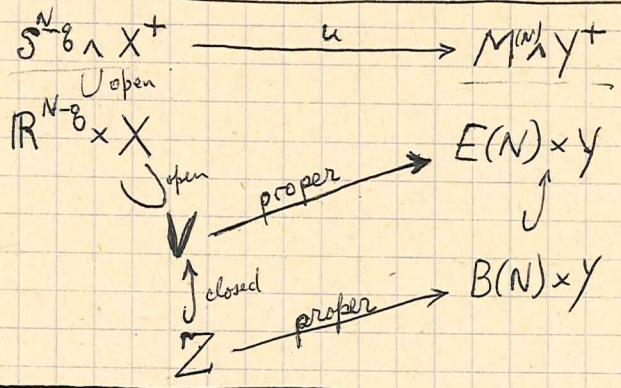 S^{N-q} ∧ X^+ u M^{(N)} ∧ Y^+
∪ open
ℝ^{N-q} × X E(N) × Y
open
proper
V
closed
proper B(N) × Y
Z